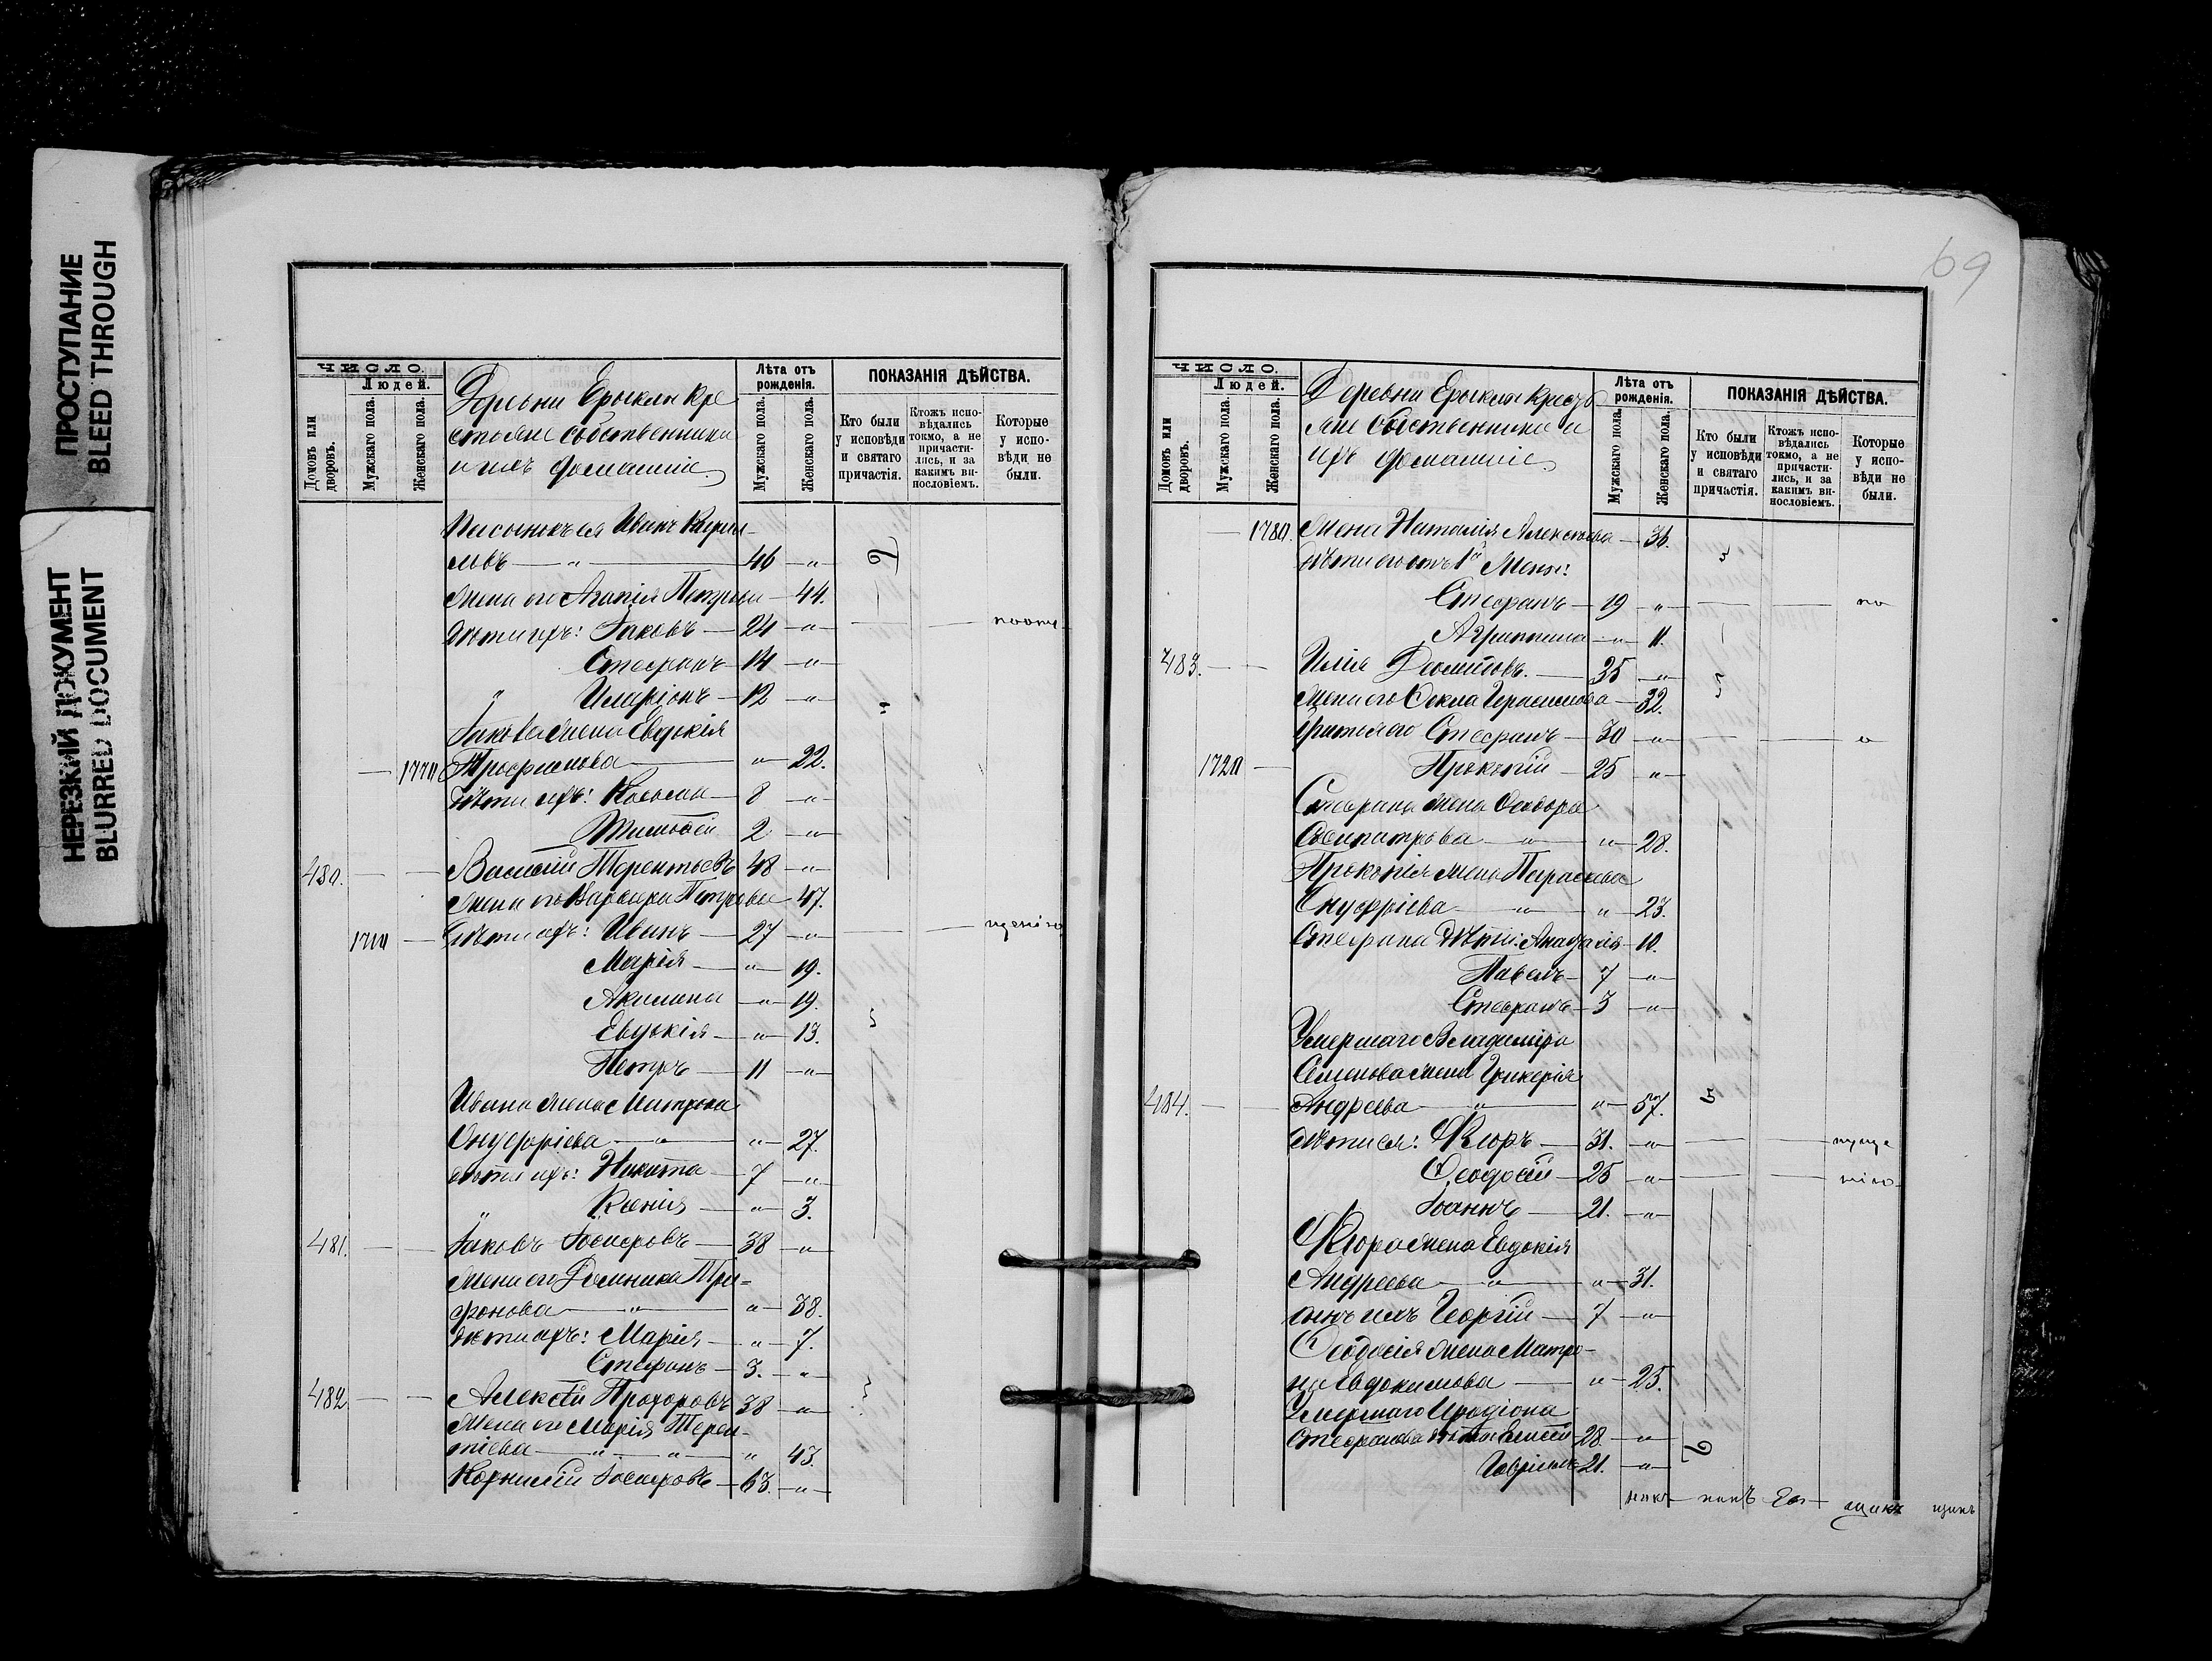 ПРОСТУПАНИЕ
BLEED THROUGH
НЕРЕЗКИЙ ДОКУМЕНТ
BLURRED DOCUMENT
ЧИСЛО.
Людей.
Домовъ или дворовъ.
Мужскаго пола.
Женскаго пола.
Деревни Ерыклы кре
стьяне собственники
и ихъ домашніе
Лѣта отъ
рожденія.
Мужскаго пола.
Женскаго пола.
ПОКАЗАНІЯ ДѢЙСТВА.
Кто были
у исповѣди
и святаго
причастія.
Ктожъ испо-
вѣдались
токмо, а не
причасти-
лись, и за
какимъ ви-
нословіемъ.
Которые
у испо-
вѣди не
были.
Пасынокъ ея Иванъ Кирил-
ловъ — " — 46 — "
Жена его Агапія Петрова — 44.
Дѣти ихъ: Іаковъ — 24 — "
Стефанъ — 14 — "
" Иларіонъ — 12 — "
Іакова жена Евдокія
Трофимова — " — 22.
Дѣти ихъ: Косьма — 8 — "
Тимоѳей 2 — "
480. — — Василій Терентьевъ 48 — "
Жена его Варвара Петрова — 47.
Дѣти ихъ: Иванъ — 27 — "
Марія — " — 19.
Акилина — " — 19.
Евдокія — " — 13.
Петръ — 11 — "
Ивана жена Митрона
Онуфріева — " — " — 27.
Дѣти ихъ: Никита — 7 — "
" Ксенія — " — 3.
481. — — Іаковъ Іосифовъ — 38 — "
Жена его Домника Три-
фонова — " — " — 38.
Дѣти ихъ: Марія — " — 7.
Стефанъ — 3. — "
482 — — Алексѣй Прохоровъ 38 — "
Жена его Марія Терен-
тіева — " — " — " 43.
Корнилій Іосифовъ — 63. — "
69
ЧИСЛО.
Людей.
Домовъ или дворовъ.
Мужскаго пола.
Женскаго пола.
Деревни Ерыклы крестья
не собственники и
ихъ домашніе
Лѣта отъ
рожденія.
Мужскаго пола.
Женскаго пола.
ПОКАЗАНІЯ ДѢЙСТВА.
Кто были
у исповѣди
и святаго
причастія.
Ктожъ испо-
вѣдались
токмо, а не
причасти-
лись, и за
какимъ ви-
нословіемъ.
Которые
у испо-
вѣди не
были.
— 1780. Жена Наталія Алексѣева — 36.
Дѣти его отъ 1й жены:
Стефанъ — 19 — " — — по
Агриппина — " — 11.
483. — — Илія Даміановъ. — 35 — "
Жена его Ѳекла Герасимова — 32.
Братья его Стефанъ — 30 — "
Прокопій — 25 — "
Стефана жена Ѳеодора
Сосипатрова — " — " — 28.
Прокопія жена Параскева
Онуфріева — " — " — 23.
Стефана дѣти: Анастасія — 10.
Павелъ — 7 — "
Стефанъ — 3 — "
Умершаго Владиміра
Семенова жена Гликерія
484. — — Андреева — " — " — 57.
Дѣти ея: Киръ — 31. — "
Ѳеодосій — 25 — "
Іоаннъ — 21. — "
Кира жена Евдокія
Андреева — " — " — 31.
сынъ ихъ Георгій — 7 — "
Ѳеодосія жена Матро-
на Евдокимова — " — 25.
Умершаго Иродіона
Стефанова дѣти: Елисей — 28. — "
Гавріилъ 21. — "